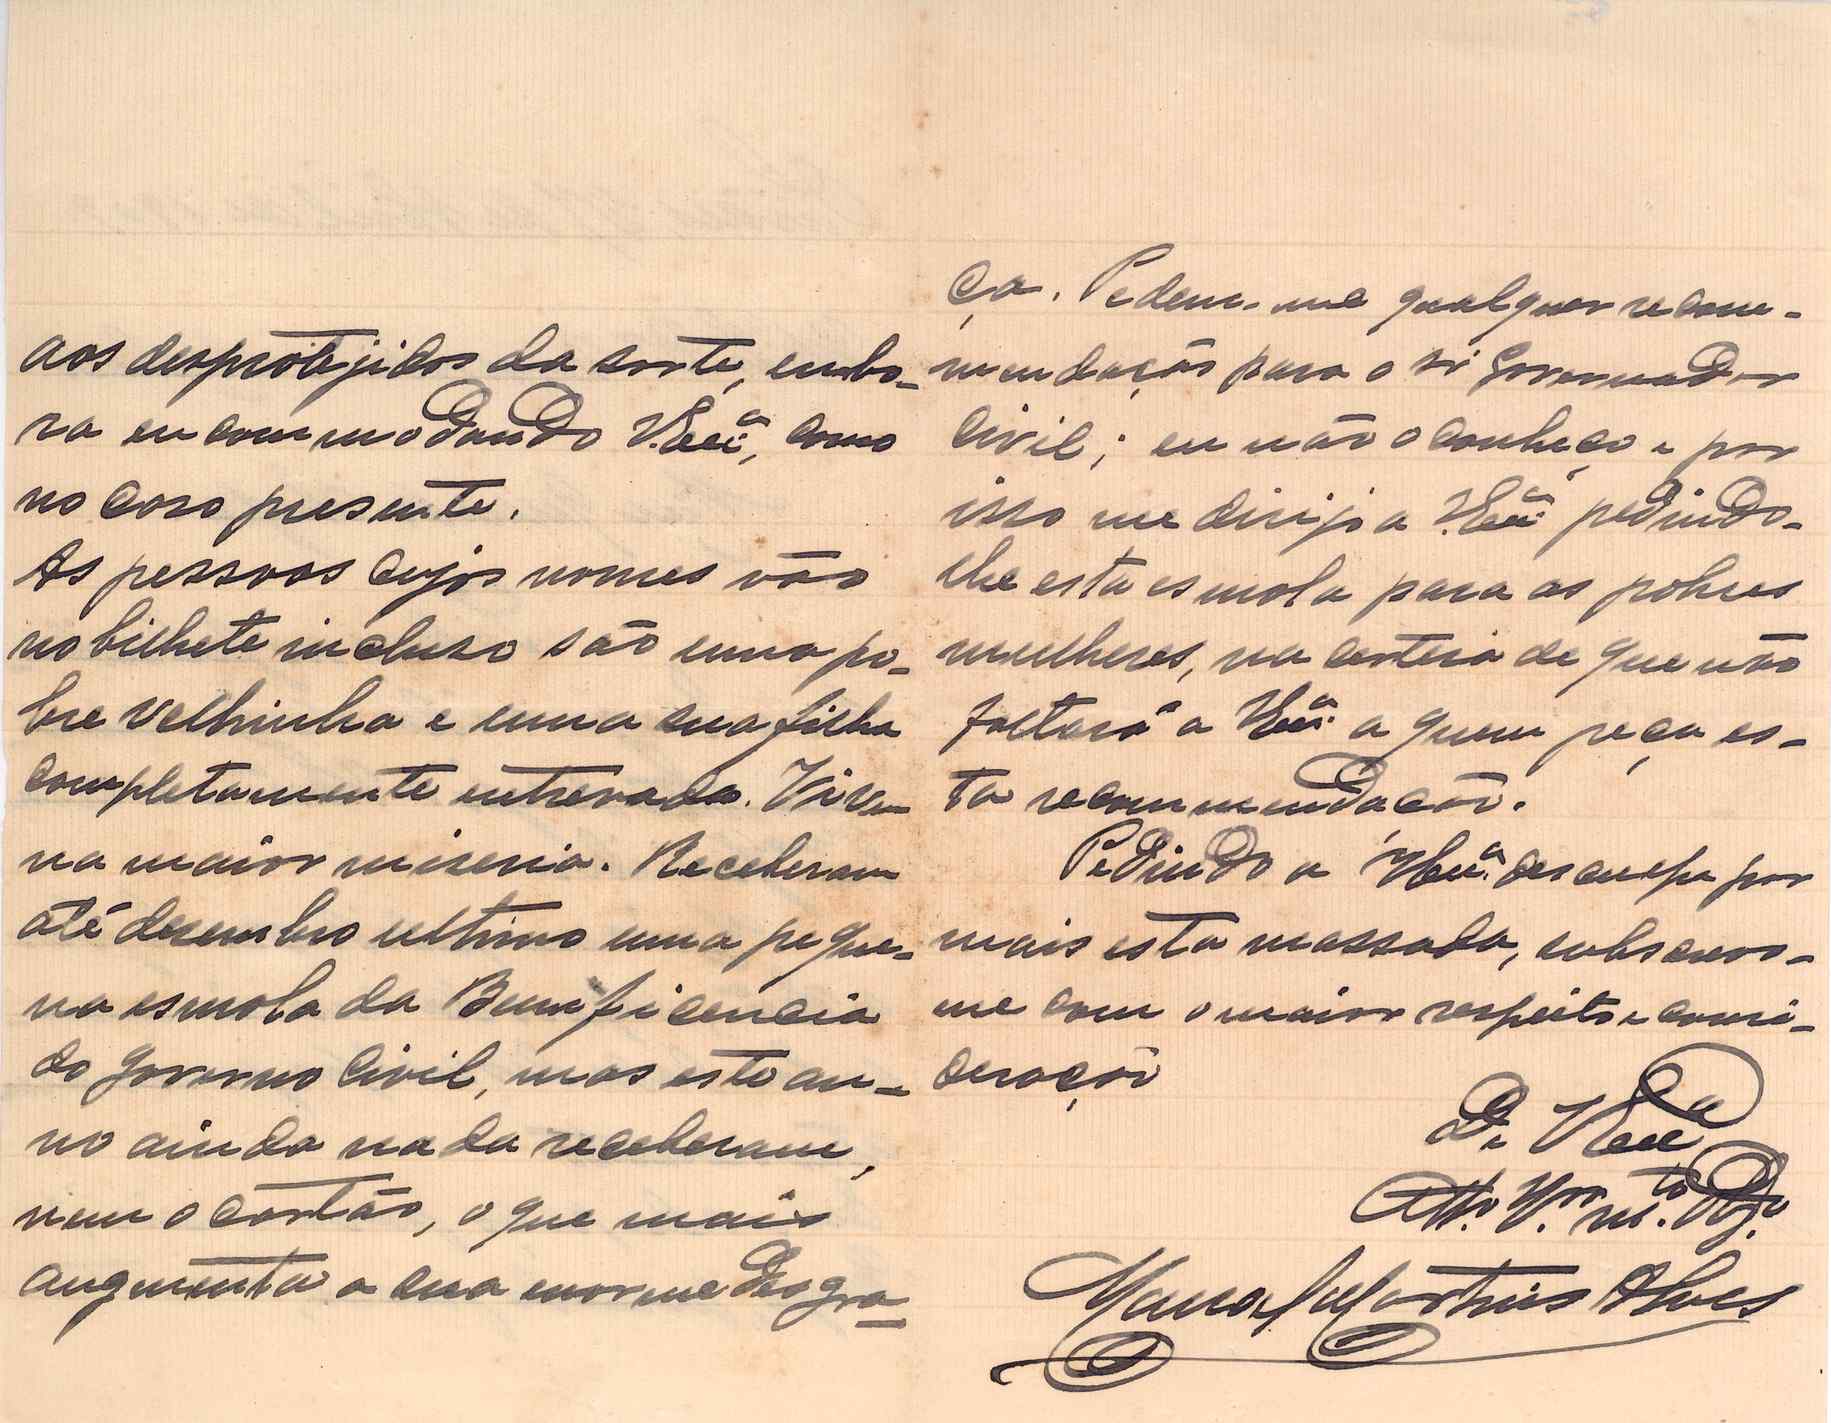 aos desprotejidos da sorte, embo-
ra encommodando V. Ex.ª, como
no caso presente.
As pessoas cujos nomes vão
no bilhete incluso são uma po-
bre velhinha e uma sua filha
completamente entrevada. Vivem
na maior miseria. Receberam
até dezembro ultimo uma peque-
na esmola da Beneficencia
do Governo Civil, mas este an-
no ainda nada receberam,
nem o cartão, o que mais
augmenta a sua enorme desgra-
ça. Pedem-me qualquer recom-
mendação para o sr Governador
Civil; eu não o conheço e por
isso me dirijo a V. Ex.ª pedindo-
lhe esta esmola para as pobres
mulheres, na certeza de que não
faltará a V. Ex.ª a quem peça es-
ta recommendação.
Pedindo a V. Ex.ª desculpa por
mais esta massada, subscrevo-
me com o maior respeito e consi-
deração
De V. Ex.ª
Att.º V.or m.to Obg.do
Manoel Martins Alves